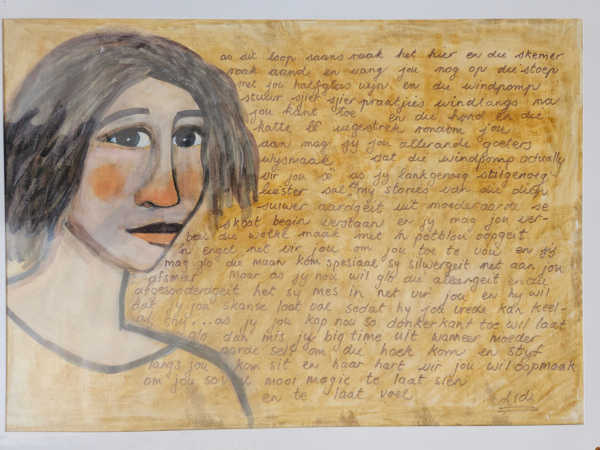 as dit loop saans raak het hier en die skemer
raak aand en vang jou nog op die stoep
met jou halfglas wyn en die windpomp
stuur sjier sjier praatjies windlangs na
jou kant toe en die hond en die
katte lê uitgestrek rondom jou
dan mag jy jou allerande goeters
wysmaak dat die windpomp actually
vir jou sê as jy lankgenoeg stilgenoeg
luister sal, my stories van die diep
suiwer aardgeit uit moederaarde se
skoot begin verstaan en jy mag jou ver-
beel die wolke maak met 'n potblou oopgeit
'n engel net vir jou om jou toe te vou en jy
mag glo die maan kom spesiaal sy silwergeit net aan jou
afsmeer Maar as jy nou wil glo die alleengeit en die
afgesonderdgeit het sy mes in net vir jou en hy wil
dat jy jou skanse laat val sodat hy jou vrede kan keel-
af sny ... as jy jou kop nou so donkerkant toe wil laat
glo dan mis jy bigtime uit wanneer moeder
aarde self om die hoek kom en styf
langs jou kom sit en haar hart vir jou wil oopmaak
om jou soveel mooi magic te laat sien
en te laat voel